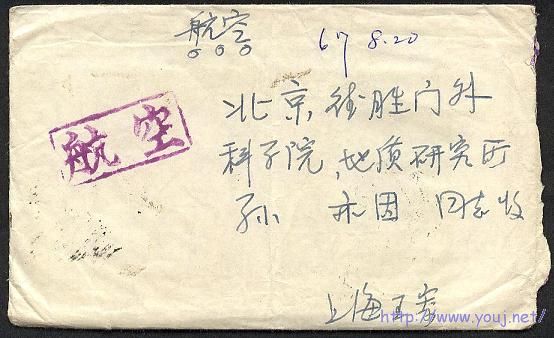 航空
67 8.20
航空
北京德胜门外
科学院、地质研究所
孙 亦因 同志收
上海王寄
http://www.youj.net/